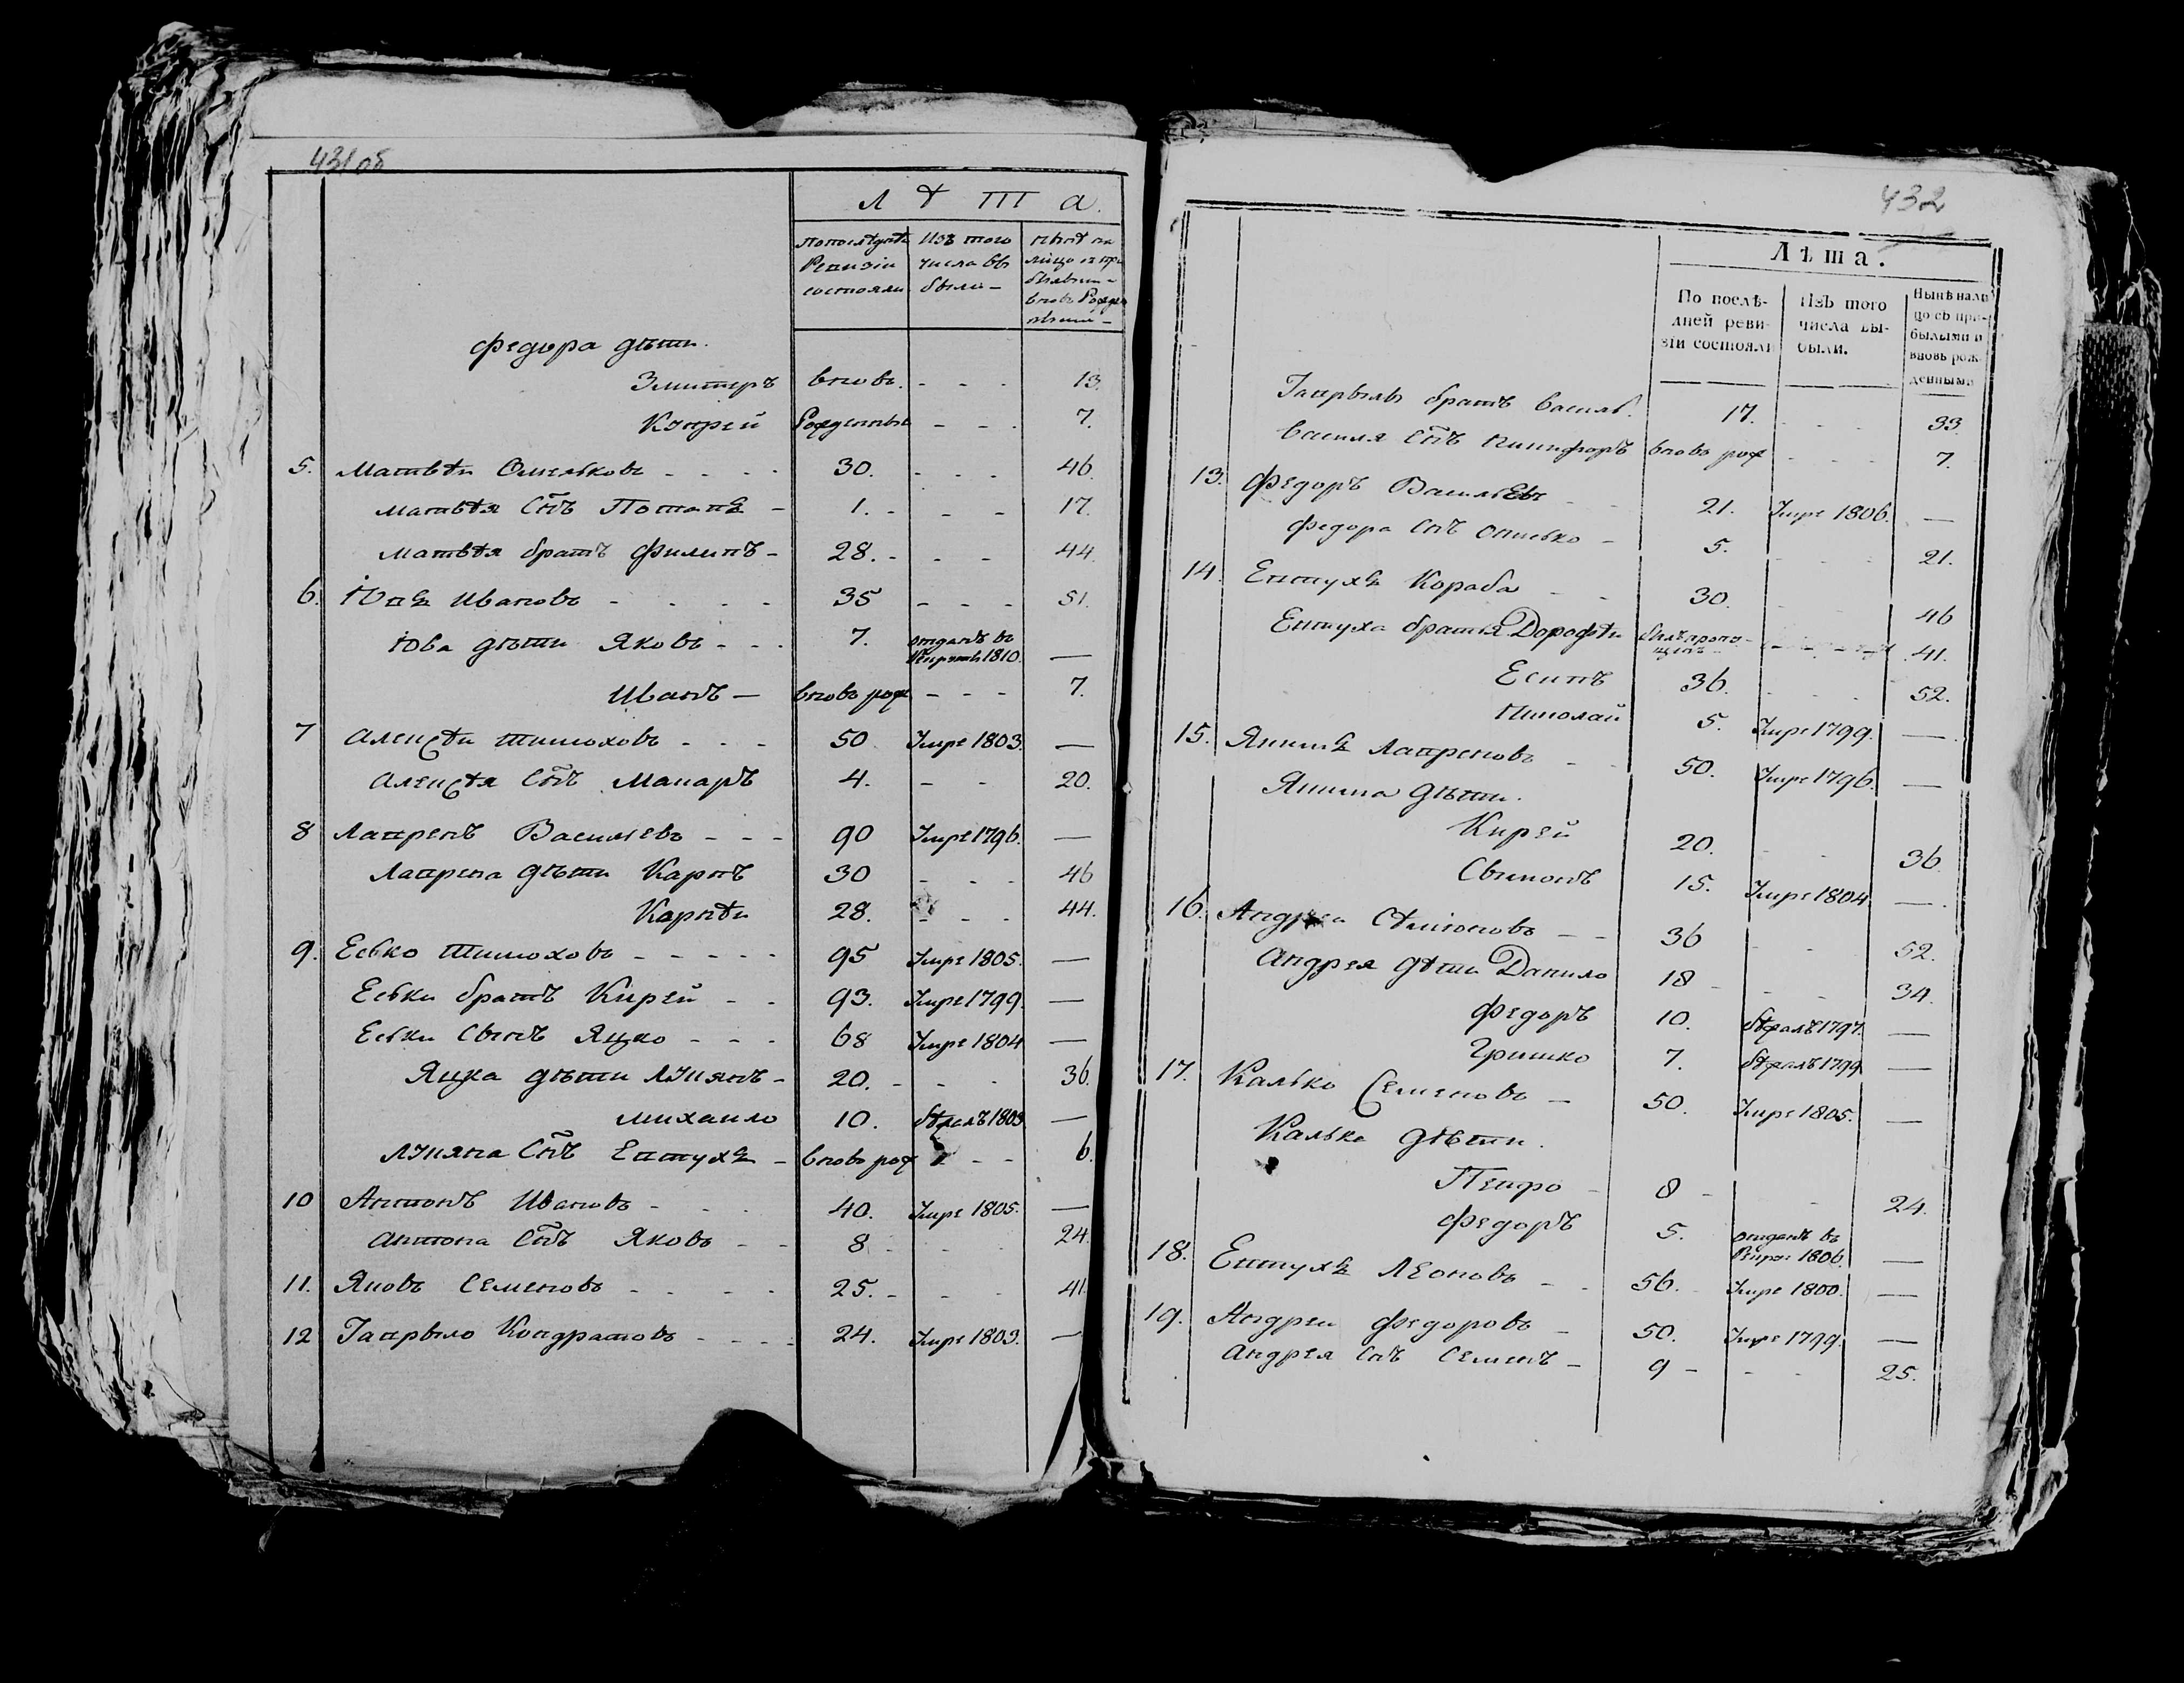 431 об
Л Ѣ Т А.
Попоследнѣ Изъ того Нынѣ на
Ревизіи числа вы лицо съ при
состояли были - былыми
вновь Рожде
Федора дѣти.
Змитеръ вновь. - - - 13.
Кондрей Рожденные - - - 7.
5. Матвѣи Омельковъ - - - - 30. - - - 46.
Матвѣя Снъ Потапъ - 1. - - - 17.
Матвѣя братъ Филипъ - 28. - - - 44.
6. Іовъ Ивановъ - - - - 35 - - - 51.
Іова дѣти Яковъ - - - 7. отданъ въ —
Рекруты 1810.
Иванъ — вновь рож - - - 7.
7 Алексѣи Тимоховъ - - - 50 Умре 1803. —
Алексѣя Снъ Макаръ 4. - - 20.
8 Лавренъ Васильевъ - - - 90 Умре 1796. —
Лаврена дѣти Карпъ 30 - - - 46
Карпѣи 28. - - - 44.
9. Есько Тимоховъ - - - - - 95 Умре 1805. —
Еськи братъ Кирей - - 93. Умре 1799. —
Еськи Сынъ Яцко - - - 68 Умре 1804 —
Яцка дѣти Лукянъ - 20. - - - 36.
михаило 10. бѣжалъ 1803 —
Лукяна Снъ Евтухъ - вновь рож - - 6.
10 Антонъ Ивановъ - - - 40. Умре 1805. —
Антона Снъ Яковъ - - 8 - - - 24
11. Яковъ Семеновъ - - - - 25. - - - 41.
12 Гаврыло Кондратовъ - - - - 24. Умре 1803. —
432
Лѣта.
По послѣ- Изъ того Нынѣ нали
дней реви- числа вы- цо съ при-
зіи состояли были. былыми и
вновь рож-
денными
Гаврылы братъ Василь. 17. - - - 33.
Василя Снъ Никифоръ вновь рож - - - 7.
13. Федоръ Васильевъ - - 21. Умре 1806. —
Федора Снъ Описько - 5. - - - 21.
14. Евтухъ Короба - - 30. - - - 46
Евтуха братья Дорофѣи 41.
Есипъ 36. - - - 52.
Николай 5. Умре 1799. —
15. Якимъ Лавреновъ - - 50. Умре 1796. —
Якима дѣти.
Кирей 20. - - 36
Сымонъ 15. Умре 1804. —
16. Андреи Сѣмионовъ - - 36 - - 52.
Андрея дѣти Данило 18 - - - 34.
Федоръ 10. бѣжалъ 1797. —
Гришко 7. бѣжалъ 1799 —
17. Калько Семеновъ - 50. Умре 1805. —
Калька дѣти.
Петро - 8 - - 24.
Федоръ 5. отданъ въ
Рекрты 1806. —
18. Евтухъ Леоновъ - - 56. Умре 1800. —
19. Андреи Федоровъ - 50. Умре 1799. —
Андрея Снъ Семенъ - 9 - - - 25.